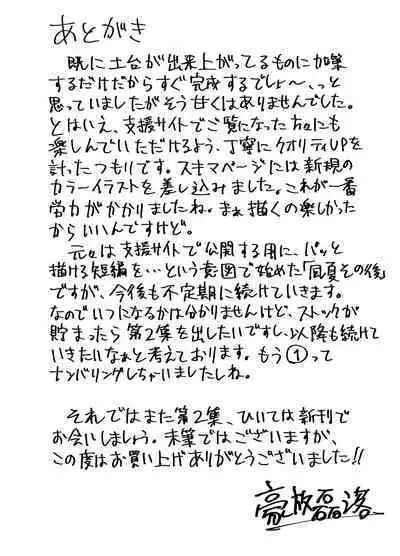 あとがき
既に土台が出来上がってるものに加筆
するだけだからすぐ完成するでしょ〜、っと
思っていましたがそう甘くはありませんでした。
とはいえ、支援サイトでご覧になった方々にも
楽しんでいただけるよう、丁寧にクオリティUPを
計ったつもりです。スキマページには新規の
カラーイラストを差し込みました。これが一番
労力がかかりましたね。まぁ描くの楽しかった
からいいんですけど。
元々は支援サイトで公開する用に、パッと
描ける短編を…という意図で始めた「凪夏その後」
ですが、今後も不定期に続けていきます。
なのでいつになるかは分かりませんけど、ストックが
貯まったら第2集を出したいですし、以降も続けて
いきたいなぁと考えております。もう①って
ナンバリングしちゃいましたしね。
それではまた第2集、ひいては新刊で
お会いしましょう。末筆ではございますが、
この度はお買い上げありがとうございました!!